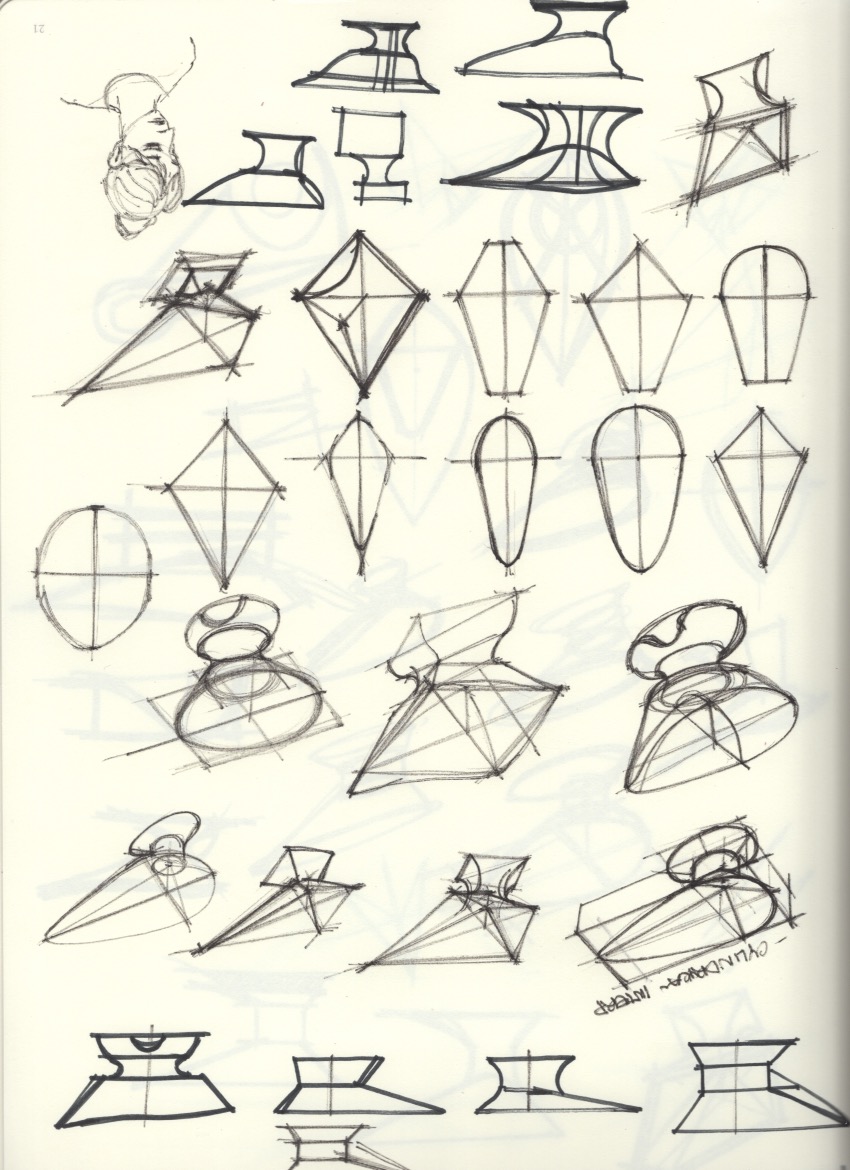 - CYLINDRICAL INTERP
21